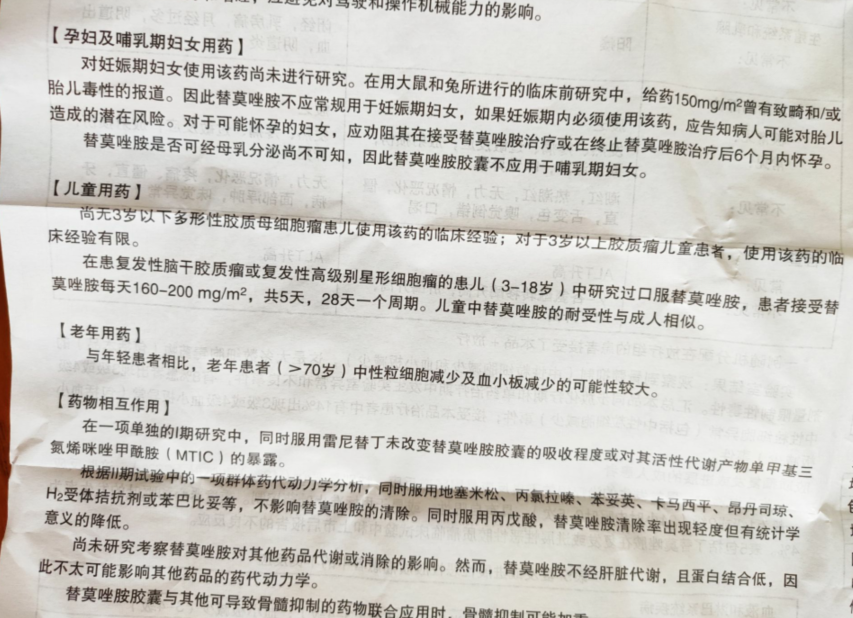 应避免对驾驶和操作机械能力的影响。
【孕妇及哺乳期妇女用药】
对妊娠期妇女使用该药尚未进行研究。在用大鼠和兔所进行的临床前研究中，给药150mg/m²曾有致畸和/或
胎儿毒性的报道。因此替莫唑胺不应常规用于妊娠期妇女，如果妊娠期内必须使用该药，应告知病人可能对胎儿
造成的潜在风险。对于可能怀孕的妇女，应劝阻其在接受替莫唑胺治疗或在终止替莫唑胺治疗后6个月内怀孕。
替莫唑胺是否可经母乳分泌尚不可知，因此替莫唑胺胶囊不应用于哺乳期妇女。
【儿童用药】
尚无3岁以下多形性胶质母细胞瘤患儿使用该药的临床经验；对于3岁以上胶质瘤儿童患者，使用该药的临
床经验有限。
在患复发性脑干胶质瘤或复发性高级别星形细胞瘤的患儿（3-18岁）中研究过口服替莫唑胺，患者接受替
莫唑胺每天160-200 mg/m²，共5天，28天一个周期。儿童中替莫唑胺的耐受性与成人相似。
【老年用药】
与年轻患者相比，老年患者（>70岁）中性粒细胞减少及血小板减少的可能性较大。
【药物相互作用】
在一项单独的I期研究中，同时服用雷尼替丁未改变替莫唑胺胶囊的吸收程度或对其活性代谢产物单甲基三
氮烯咪唑甲酰胺（MTIC）的暴露。
根据II期试验中的一项群体药代动力学分析，同时服用地塞米松、丙氯拉嗪、苯妥英、卡马西平、昂丹司琼、
H₂受体拮抗剂或苯巴比妥等，不影响替莫唑胺的清除。同时服用丙戊酸，替莫唑胺清除率出现轻度但有统计学
意义的降低。
尚未研究考察替莫唑胺对其他药品代谢或消除的影响。然而，替莫唑胺不经肝脏代谢，且蛋白结合低，因
此不太可能影响其他药品的药代动力学。
替莫唑胺胶囊与其他可导致骨髓抑制的药物联合应用时，骨髓抑制可能加重